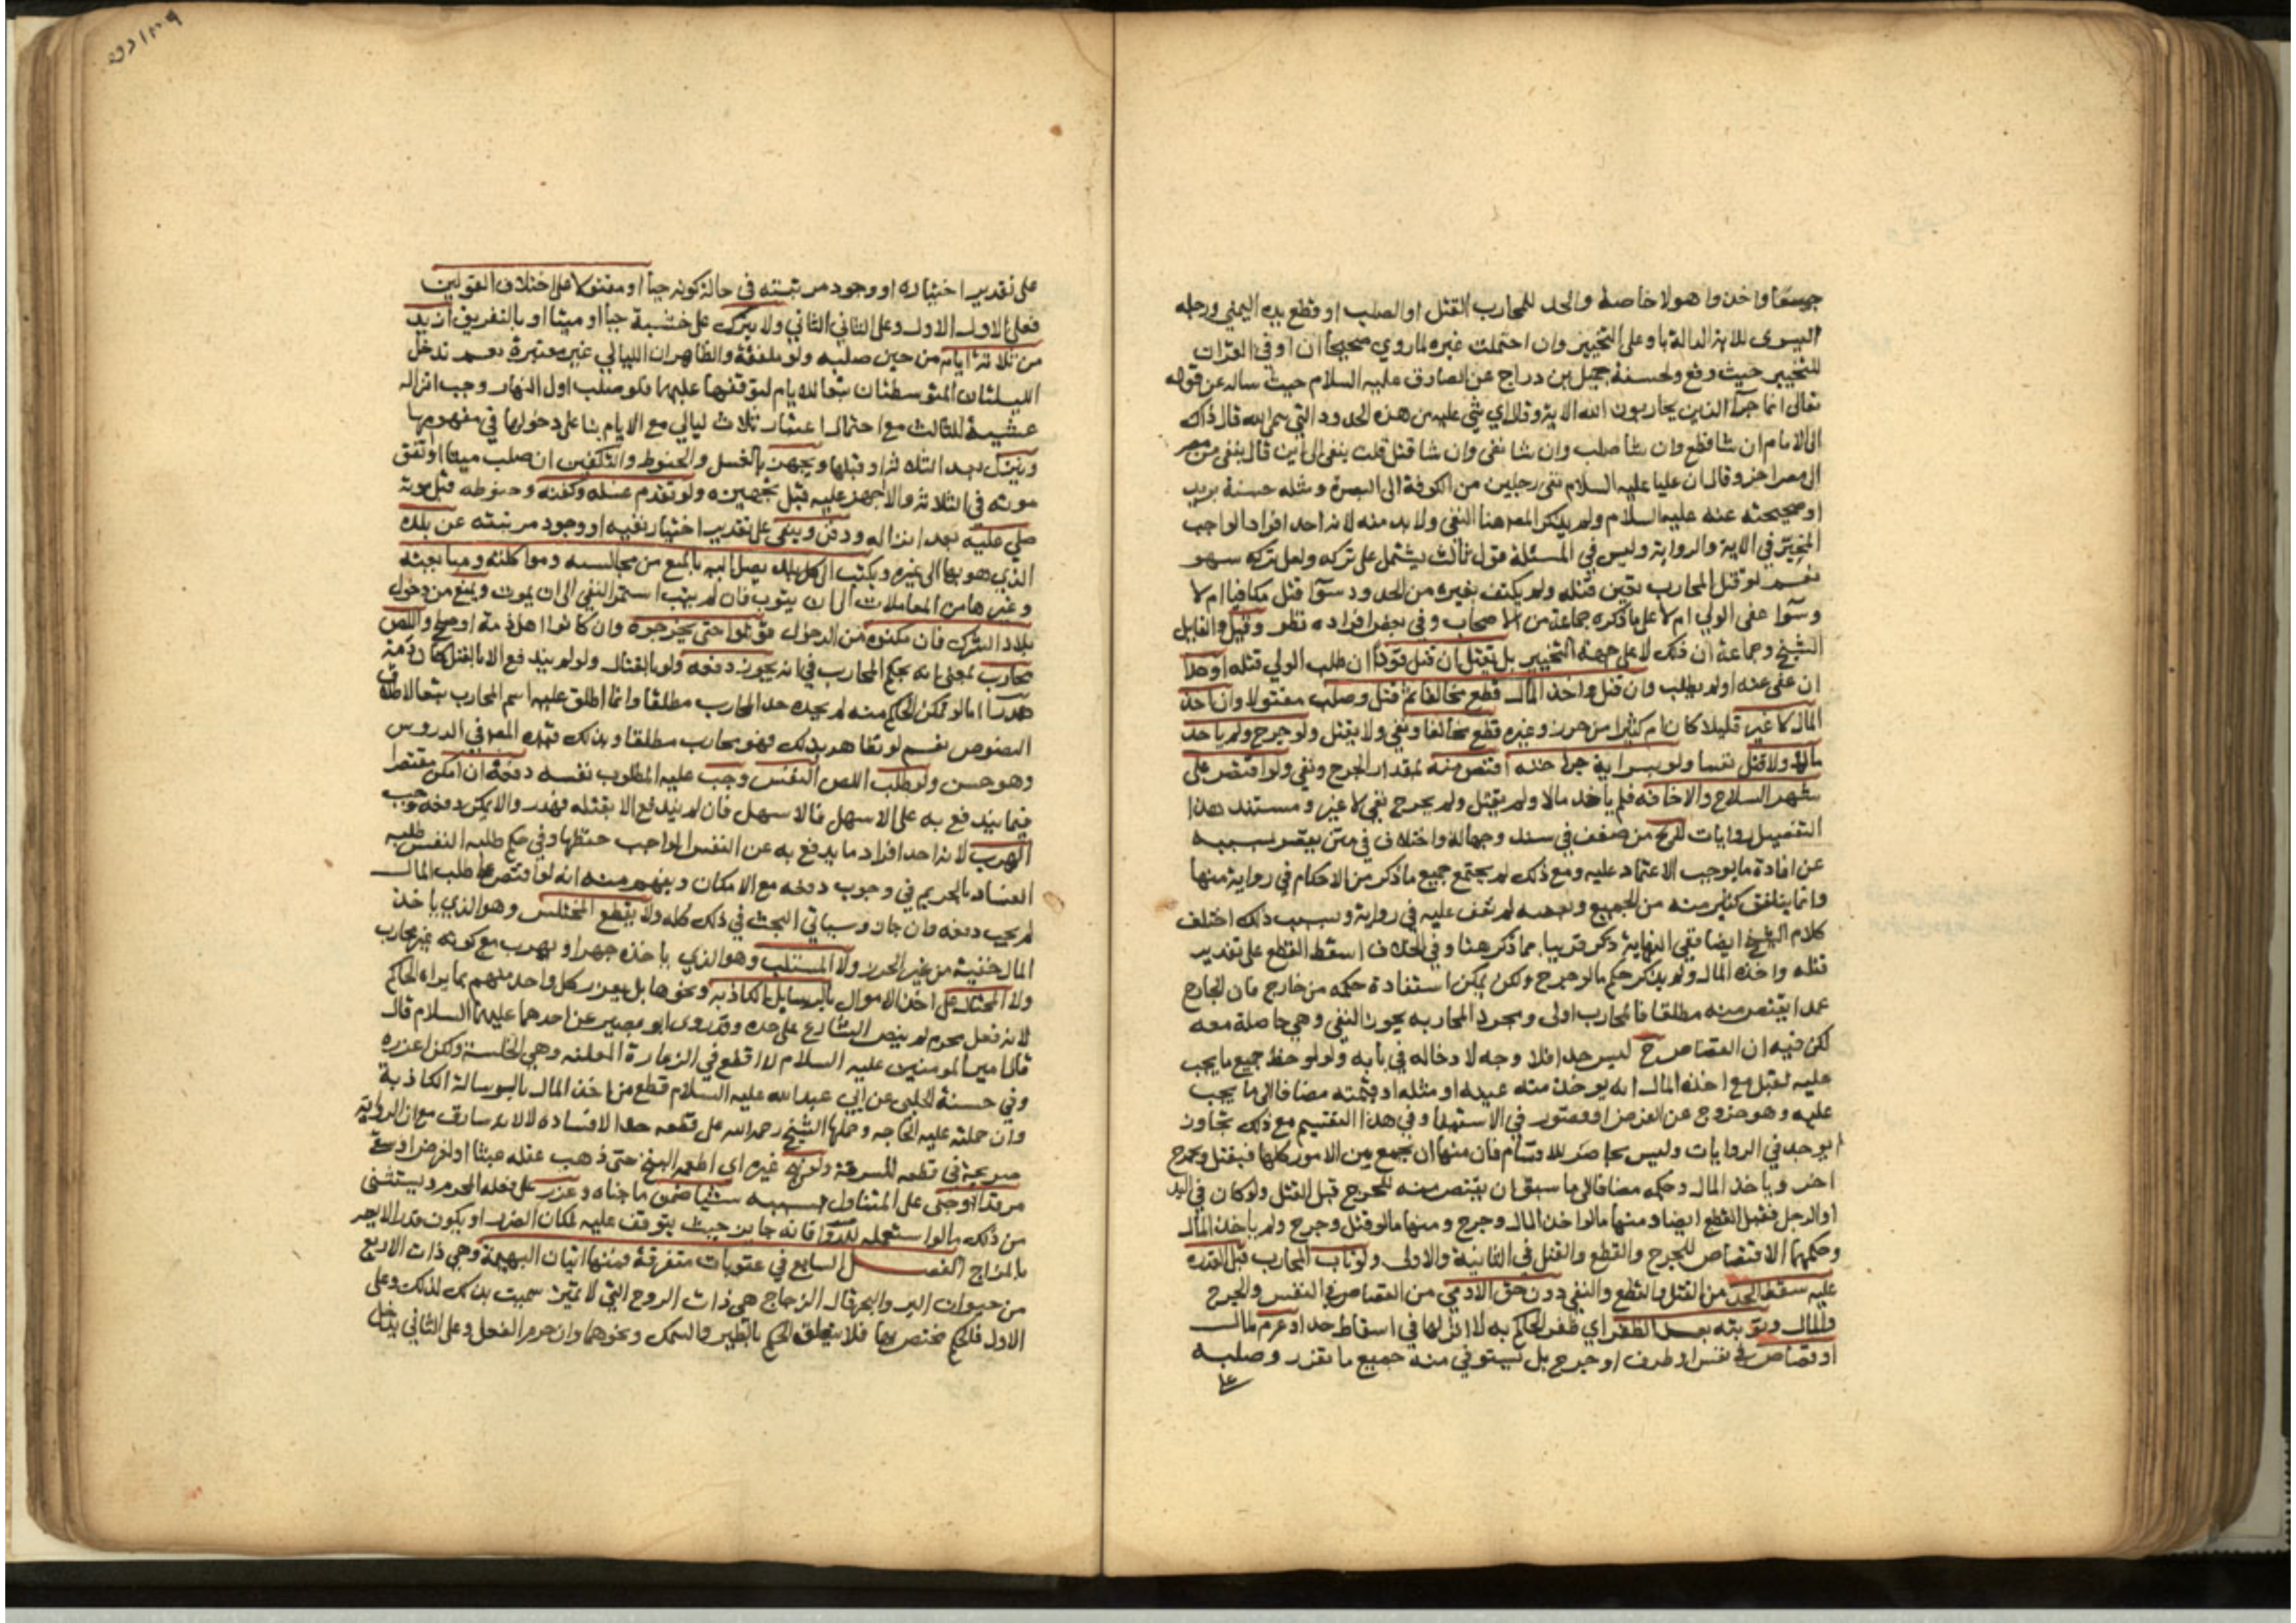 جميعا واخذوا هولا خاصة والحد للمحارب القتل او الصلب او قطع يده اليمنى ورجله
اليسرى للاية الدالة باو على التخيير وان احتملت غيره لما روي صحيحا ان او في القرات
للتخيير حيث وقع ولحسنة جميل بن دراج عن الصادق عليه السلام حيث ساله عن قوله
تعالى انما جزآ الذين يحاربون الله الاية وقلا اي شي عليه من هذه الحدود التي سمى الله قال ذاك
الى الامام ان شا قطع وان شا صلب وان شا نفى وان شا قتل قلت ينفى الى اين قال ينفى من مصر
الى مصر اخر وقال ان عليا عليه السلام نفى رجلين من الكوفة الى البصرة ومثله حسنة بريد
او صحيحته عنه عليه السلام ولم يذكر المص هنا النفي ولا بد منه لانه احد افراد الواجب
المخير في الاية والرواية وليس في المسئلة قول ثالث يشتمل على تركه ولعل تركه سهو
نعم لو قتل المحارب تعين قتله ولم يكتف بغيره من الحدود سوآ قتل مكافيا ام لا
وسوآ عفى الولي ام لا على ما ذكره جماعة من الاصحاب وفي بعض افراده نظر وقيل والقايل
الشيخ وجماعة ان ذلك لا على جهة التخيير بل يقتل ان قتل قودا ان طلب الولي قتله او حدا
ان عفى عنه او لم يطلب وان قتل واخذ المال قطع مخالفا ثم قتل وصلب مقتولا وان اخذ
المال لا غير قليلا كان ام كثيرا من حرز وغيره قطع مخالفا ونفي ولا يقتل ولو جرح ولم ياخذ
مالا ولا قتل نفسا ولو بسراية جراحته اقتص منه بمقدار الجرح ونفي ولو اقتصر على
شهر السلاح والاخافة فلم ياخذ مالا ولم يقتل ولم يجرح نفي لا غير ومستند هذا
التفصيل روايات لا تخ من ضعف في سند وجهالة واختلاف في متن يقصر بسببه
عن افادة ما يوجب الاعتماد عليه ومع ذلك لم يجتمع جميع ما ذكر من الاحكام في رواية منها
وانما يتلفق كثير منه من الجميع وبعضه لم نقف عليه في رواية وبسبب ذلك اختلف
كلام الشيخ ايضا ففي النهاية ذكر قريبا مما ذكر هنا وفي الخلاف اسقط القطع على تقدير
قتله واخذه المال ولم يذكر حكم ما لو جرح ولكن يمكن استفادة حكمه من خارج فان الجارح
عمدا يقتص منه مطلقا فالمحارب اولى ومجرد المحاربه يجوز النفي وهي حاصلة معه
لكن فيه ان القصاص ح ليس حدا فلا وجه لادخاله في بابه ولو لوحظ جميع ما يجب
عليه لقيل مع اخذه المال انه يوخذ منه عينه او مثله او قيمته مضافا الى ما يجب
عليه وهو خروج عن الغرض او قصور في الاستيفا وفي هذا التقسيم مع ذلك تجاوز
لا يوجد في الروايات وليس بحاصر للاقسام فان منها ان يجمع بين الامور كلها فيقتل ويجرح
اخر وياخذ المال وحكمه مضافا الى ما سبق ان يقتص منه للجرح قبل القتل ولو كان في اليد
او الرجل فقبل القطع ايضا ومنها ما لو اخذ المال وجرح ومنها ما لو قتل وجرح ولم ياخذ المال
وحكمها الاقتصاص للجرح والقطع والقتل في الثانية والاولى ولو تاب المحارب قبل القدرة
عليه سقط الحد من القتل والقطع والنفي دون حق الادمي من القصاص في النفس والجرح
والمال وتوبته بعد الظفر اي ظفر الحاكم به لا اثر لها في اسقاط حد او غرم لمال
او قصاص في نفس او طرف او جرح بل يستوفي منه جميع ما تقرر وصلبه
على تقدير اختياره او وجود مرتبته في حالة كونه حيا او مقتولا على اختلاف القولين
فعلى الاول الاول وعلى الثاني الثاني ولا يترك على خشبة حيا او ميتا او بالتفريق ازيد
من ثلاثة ايام من حين صلبه ولو ملفقة والظاهر ان الليالي غير معتبرة نعم تدخل
الليلتان المتوسطتان تبعا للايام لتوقفها عليهما فلو صلب اول النهار وجب انزاله
عشية الثالث مع احتمال اعتبار ثلاث ليالي مع الايام بنا على دخولها في مفهومها
وينزل بعد الثلاثة او قبلها ويجهز بالغسل والحنوط والتكفين ان صلب ميتا او اتفق
موته في الثلاثة والا اجهز عليه قبل تجهيزه ولو تقدم غسله وكفنه وحنوطه قبل موته
صلي عليه بعد انزاله ودفن وينفى على تقدير اختيار نفيه او وجود مرتبته عن بلده
الذي هو بها الى غيره ويكتب الى كل بلد يصل اليه بالمنع من مجالسته ومواكلته ومبايعته
وغيرها من المعاملات الى ان يتوب فان لم يتب استمر النفي الى ان يموت ويمنع من دخول
بلاد الشرك فان مكنوه من الدخول قوتلوا حتى يخرجوه وان كانوا اهل ذمة او صلح واللص
محارب بمعنى انه بحكم المحارب في انه يجوز دفعه ولو بالقتال ولو لم يندفع الا بالقتل كان دمه
هدرا اما لو تمكن الحاكم منه لم يحده حد المحارب مطلقا وانما اطلق عليه اسم المحارب تبعا لاطلاق
النصوص نعم لو تظاهر بذلك فهو محارب مطلقا وبذلك قيده المص في الدروس
وهو حسن ولو طلب اللص النفس وجب عليه المطلوب نفسه دفعه ان امكن مقتصرا
فيما يندفع به على الاسهل فالاسهل فان لم يندفع الا بقتله فهدر والا يمكن دفعه وجب
الهرب لانه احد افراد ما يدفع به عن النفس الواجب حفظها وفي حكم طلبه النفس طلبه
الفساد بالحريم في وجوب دفعه مع الامكان ويفهم منه انه لو اقتصر على طلب المال
لم يجب دفعه وان جاز وسياتي البحث في ذلك كله ولا يقطع المختلس وهو الذي ياخذ
المال خفية من غير الحرز ولا المستلب وهو الذي ياخذه جهرا ويهرب مع كونه غير محارب
ولا المحتال على اخذ الاموال بالرسايل الكاذبه ونحوها بل يعزر كل واحد منهم بما يراه الحاكم
لانه فعل محرم لم ينص الشارع على حده وقد روى ابو بصير عن احدهما عليهما السلام قال
قال امير المومنين عليه السلام لا اقطع في الزعارة المعلنه وهي الخلسة ولكن اعزره
وفي حسنة الحلبي عن ابي عبد الله عليه السلام قطع من اخذ المال بالرسالة الكاذبة
وان حملته عليه الحاجه وحملها الشيخ رحمه الله على قطعه حدا لافساده لا لانه سارق مع ان الرواية
صريحة في قطعه للسرقة ولو بنج غيره اي اطعمه البنج حتى ذهب عقله عبثا او لغرض او سقى
مرقدا وجنى على المتناول بسببه شيئا ضمن ما جناه وعزر على فعله المحرم ويستثنى
من ذلك ما لو استعمله للدوا فانه جايز حيث يتوقف عليه لمكان الضرر او يكون قدرا لا يضر
بالمزاج الفصل السابع في عقوبات متفرقة فمنها اتيان البهيمة وهي ذات الاربع
من حيوان البر والبحر قال الزجاج هي ذات الروح التي لا تميز سميت بذلك لذلك وعلى
الاول فالحكم مختص بها فلا يتعلق الحكم بالطير والسمك ونحوهما وان حرم الفعل وعلى الثاني يدخل